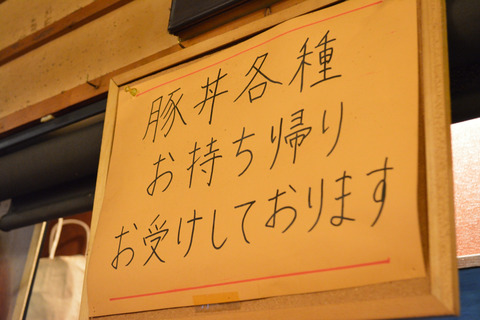 豚丼各種
お持ち帰り
お受けしております